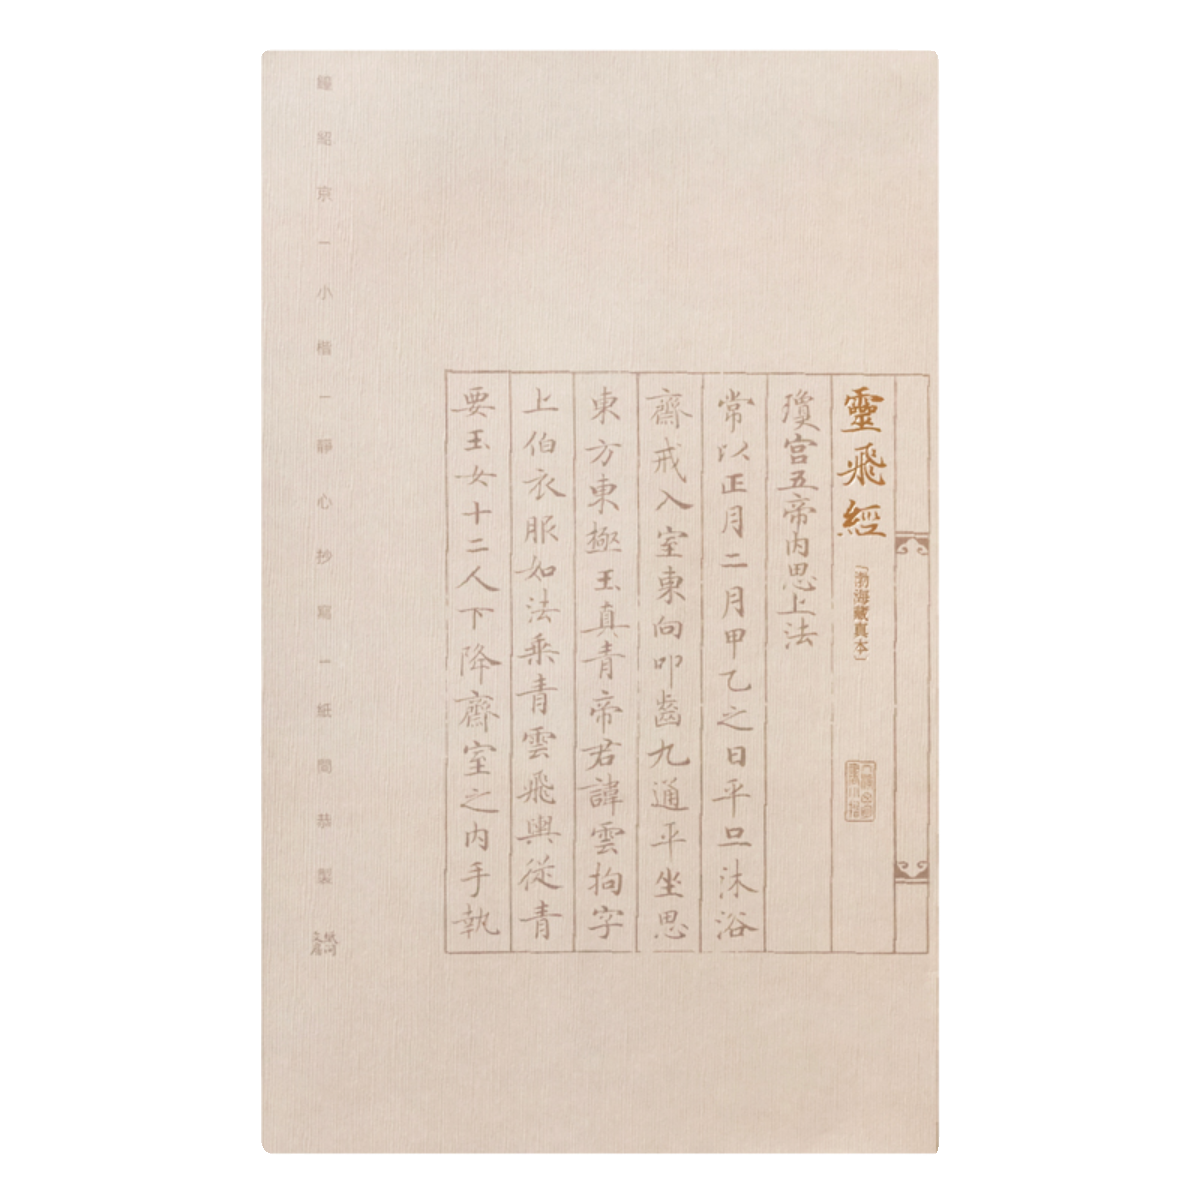 靈飛經
「渤海藏真本」
瓊宮五帝內思上法
常以正月二月甲乙之日平旦沐浴
齋戒入室東向叩齒九通平坐思
東方東極玉真青帝君諱雲拘字
上伯衣服如法乘青雲飛輿從青
要玉女十二人下降齋室之內手執
鐘紹京－小楷－靜心抄寫－紙間恭製